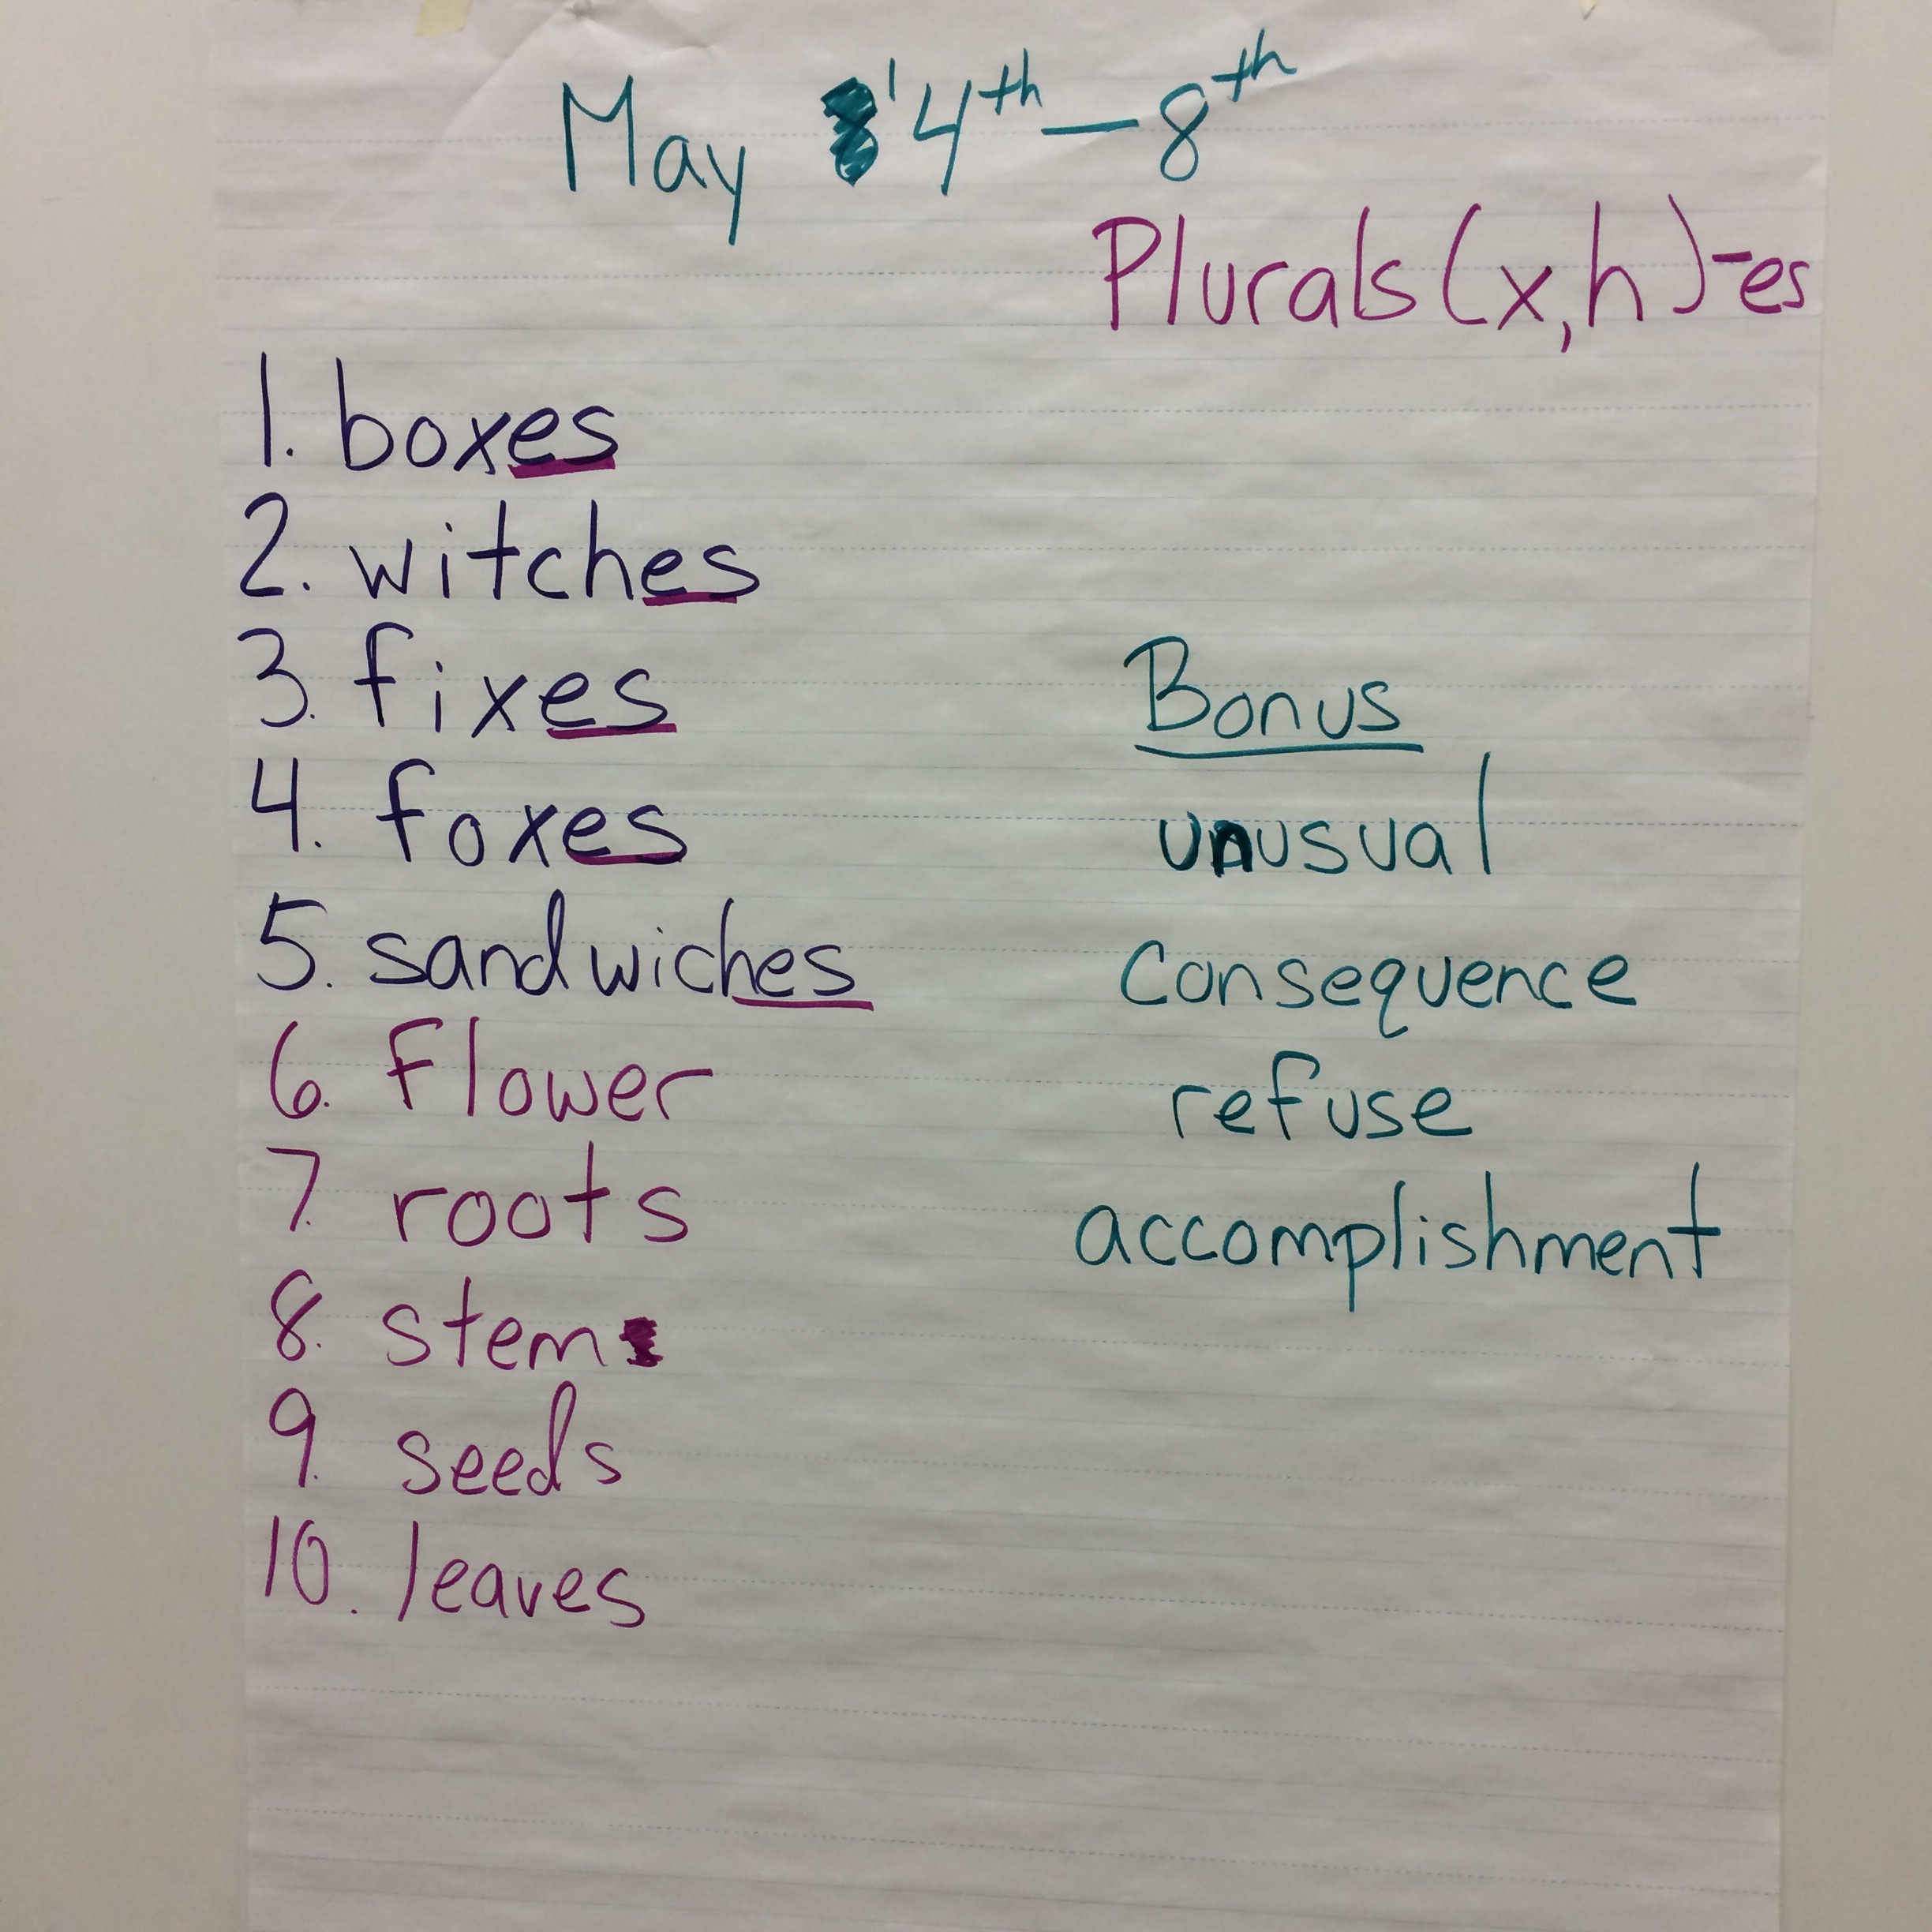 May 4th — 8th
Plurals (x,h) -es
1. boxes
2. witches
3. fixes
4. foxes
5. sandwiches
6. flower
7. roots
8. stem
9. seeds
10. leaves
Bonus
unusual
consequence
refuse
accomplishment